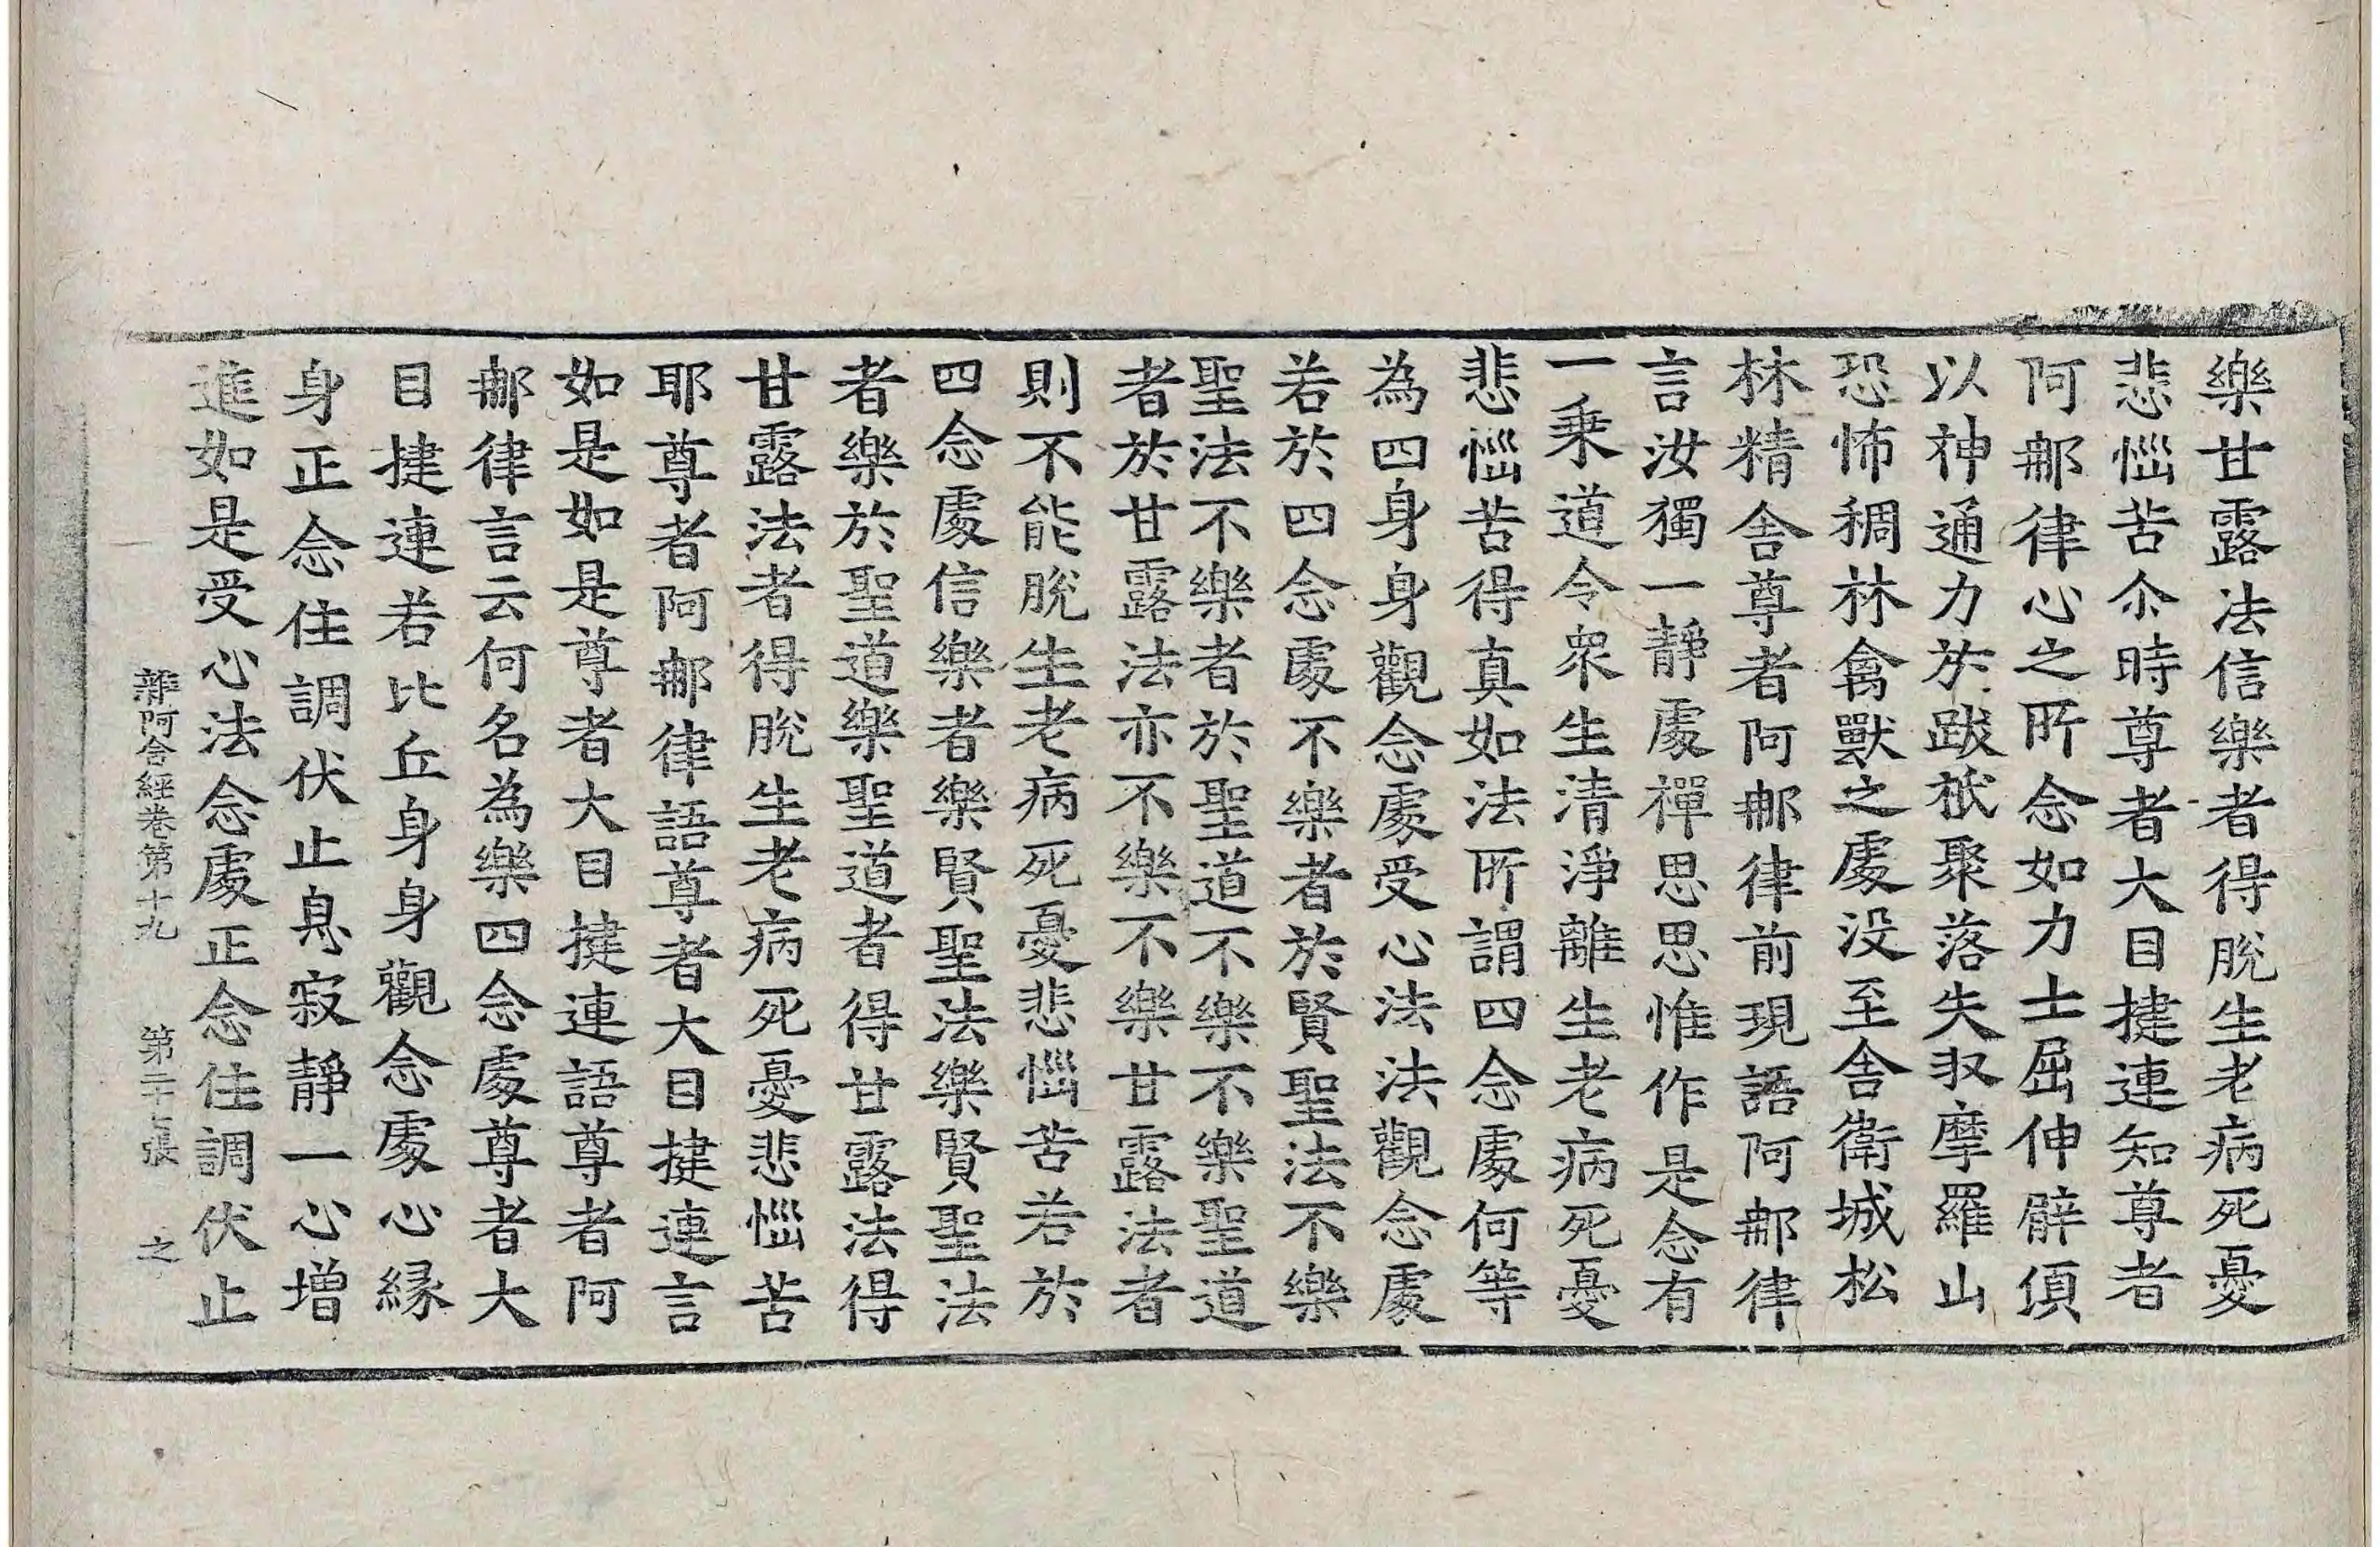 樂甘露法信樂者得脫生老病死憂
悲惱苦尒時尊者大目揵連知尊者
阿那律心之所念如力士屈伸臂頃
以神通力於跋祇聚落失収摩羅山
恐怖稠林禽獸之處没至舎衛城松
林精舎尊者阿那律前現語阿那律
言汝獨一靜處禪思思惟作是念有
一乗道令衆生清淨離生老病死憂
悲惱苦得真如法所謂四念處何等
為四身身觀念處受心法法觀念處
若於四念處不樂者於賢聖法不樂
聖法不樂者於聖道不樂不樂聖道
者於甘露法亦不樂不樂甘露法者
則不能脫生老病死憂悲惱苦若於
四念處信樂者樂賢聖法樂賢聖法
者樂於聖道樂聖道者得甘露法得
甘露法者得脫生老病死憂悲惱苦
耶尊者阿那律語尊者大目揵連言
如是如是尊者大目揵連語尊者阿
那律言云何名為樂四念處尊者大
目揵連若比丘身身觀念處心縁
身正念住調伏止息寂靜一心增
進如是受心法念處正念住調伏止
雜阿含經卷第十九 第二十七張 之